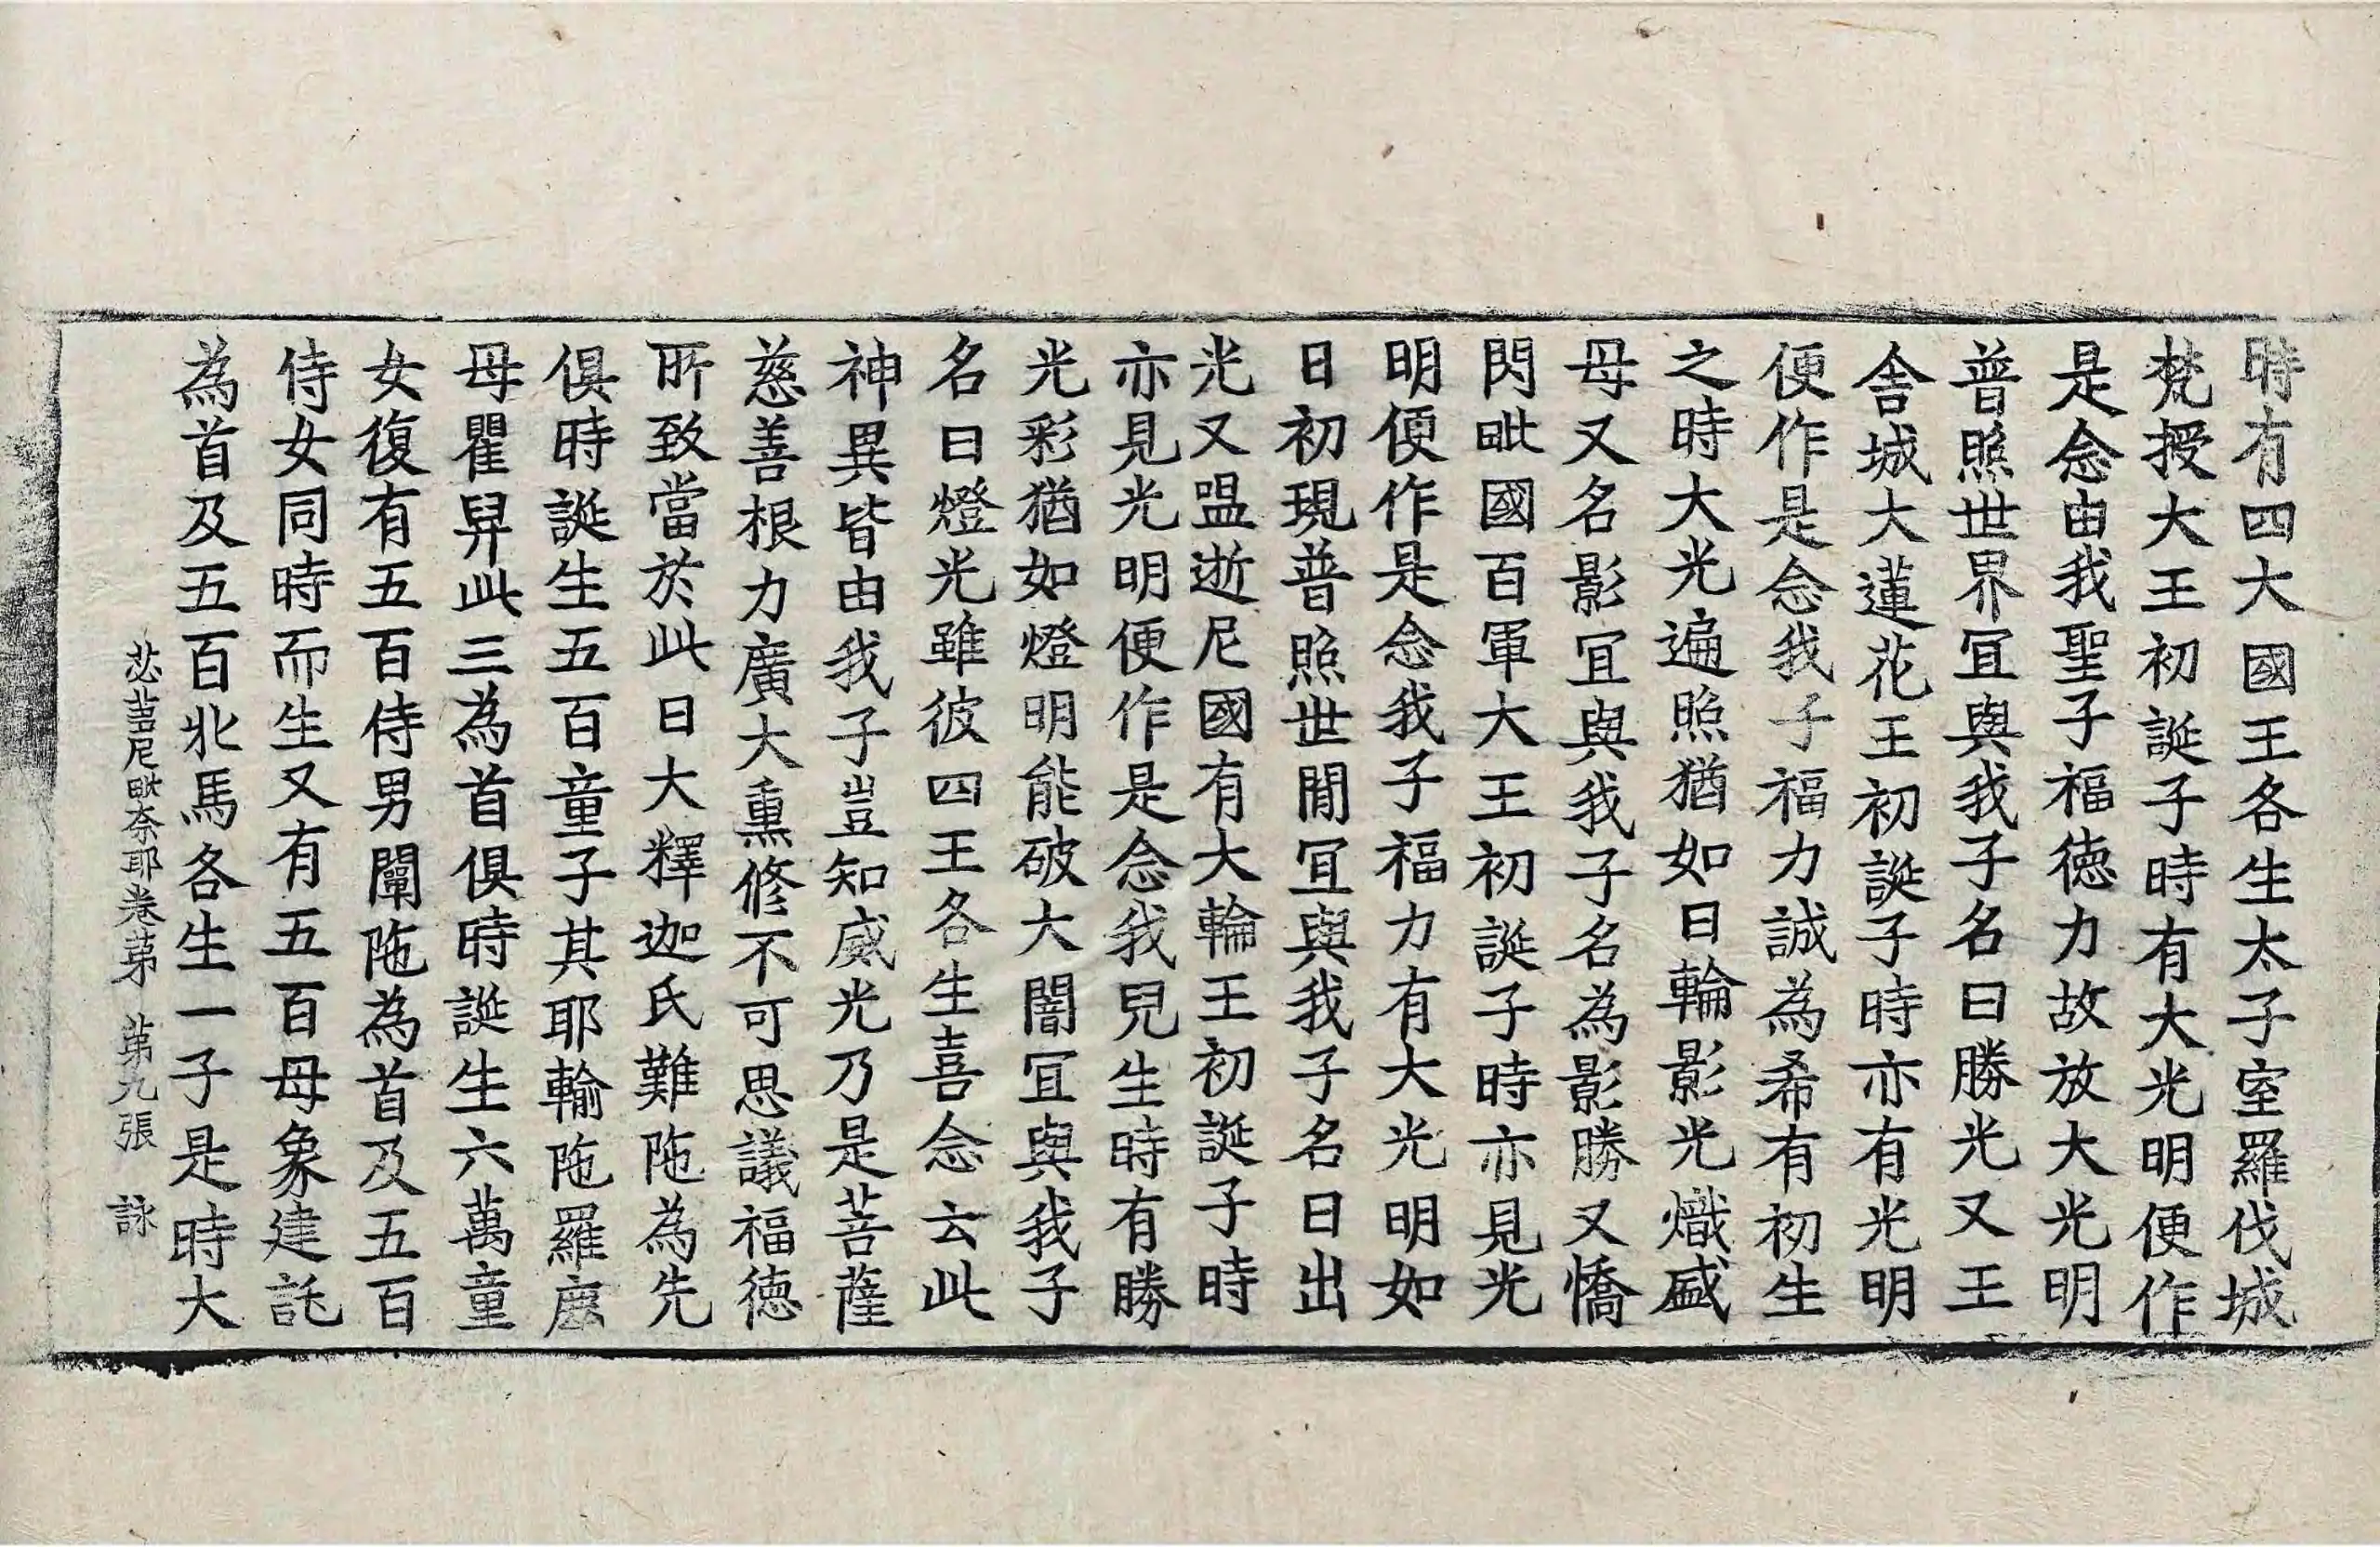 時有四大國王各生太子室羅伐城
梵授大王初誕子時有大光明便作
是念由我聖子福徳力故放大光明
普照世界冝與我子名曰勝光又王
舍城大蓮花王初誕子時亦有光明
便作是念我子福力誠為希有初生
之時大光遍照猶如日輪影光熾盛
母又名影冝與我子名為影勝又憍
閃毗國百軍大王初誕子時亦見光
明便作是念我子福力有大光明如
日初現普照世間冝與我子名日出
光又嗢逝尼國有大輪王初誕子時
亦見光明便作是念我兒生時有勝
光彩猶如燈明能破大闇冝與我子
名曰燈光雖彼四王各生喜念云此
神異皆由我子豈知威光乃是菩薩
慈善根力廣大熏修不可思議福徳
所致當於此日大釋迦氏難陁為先
俱時誕生五百童子其耶輸陁羅
母瞿此三為首俱時誕生六萬童
女復有五百侍男闡陁為首及五百
侍女同時而生又有五百母象建託
為首及五百北馬各生一子是時大
苾蒭尼毗奈耶卷苐 苐九張 詠